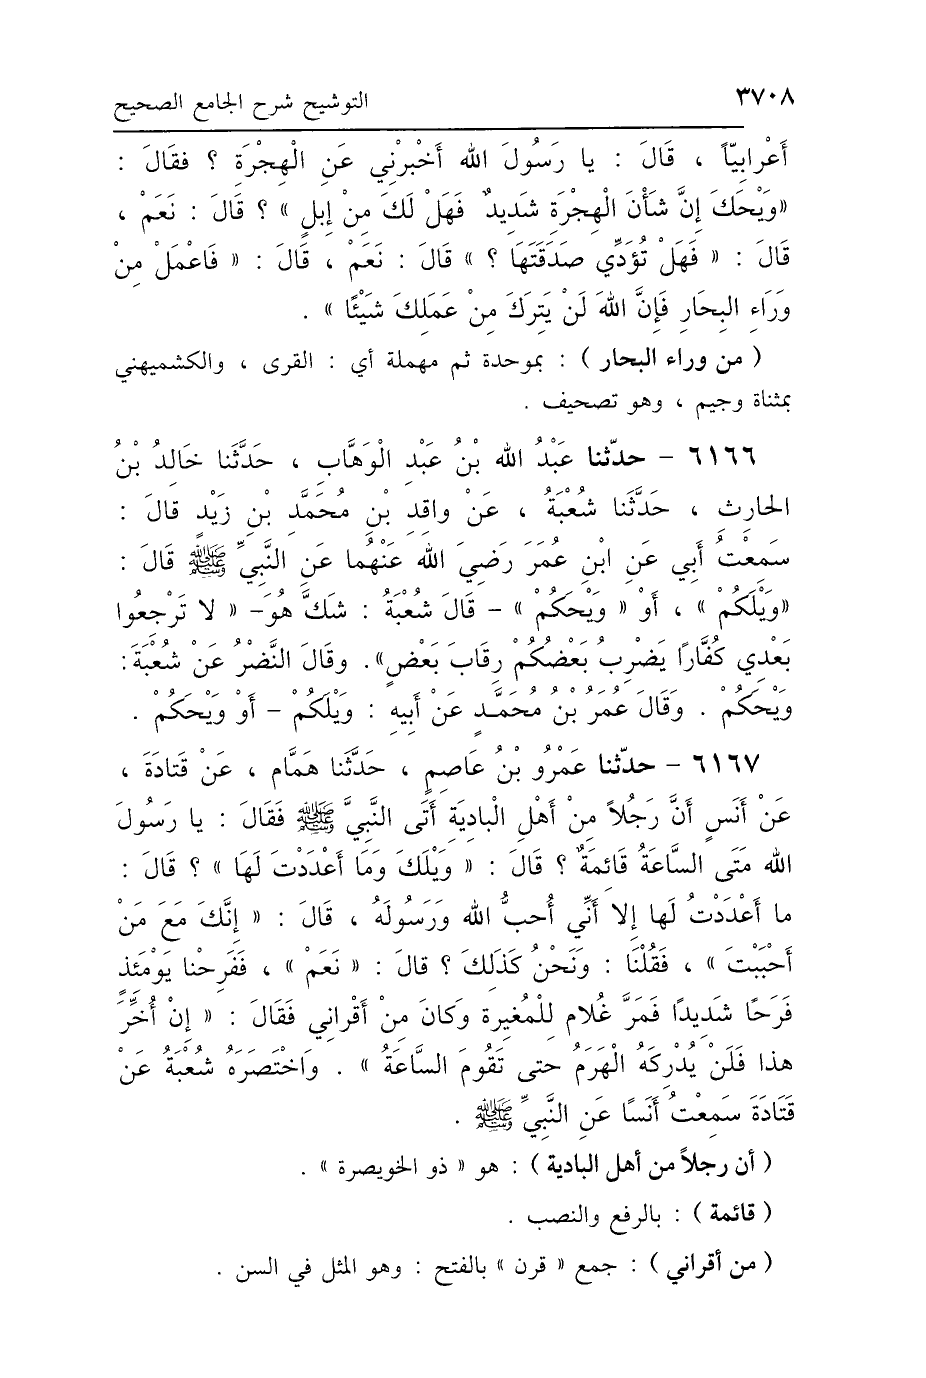 ٣٧٠٨ التوشيح شرح الجامع الصحيح
أَعْرابِيّاً ، قَالَ : يا رَسُولَ الله أَخْبِرْنِي عَنِ الْهِجْرَةِ ؟ فقَالَ :
«وَيْحَكَ إِنَّ شَأْنَ الْهِجْرَةِ شَدِيدٌ فَهَلْ لَكَ مِنْ إِبِلٍ » ؟ قَالَ : نَعَمْ ،
قَالَ : « فَهَلْ تُؤَدِّي صَدَقَتَهَا ؟ » قَالَ : نَعَمْ ، قَالَ : « فَاعْمَلْ مِنْ
وَرَاءِ البِحَارِ فَإِنَّ اللهَ لَنْ يَتِرَكَ مِنْ عَمَلِكَ شَيْئًا » .
( من وراء البحار ) : بموحدة ثم مهملة أي : القرى ، والكشميهني
بمثناة وجيم ، وهو تصحيف .
٦١٦٦ – حدّثنا عَبْدُ الله بْنُ عَبْدِ الْوَهَّابِ ، حَدَّثَنا خَالِدُ بْنُ
الحارِثِ ، حَدَّثَنَا شُعْبَةُ ، عَنْ واقِدِ بْنِ مُحَمَّدِ بْنِ زَيْدٍ قالَ :
سَمِعْتُ أَبِي عَنِ ابْنِ عُمَرَ رَضِيَ الله عَنْهُما عَنِ النَّبِيِّ ﷺ قَالَ :
«وَيْلَكُمْ » ، أَوْ « وَيْحَكُمْ » – قَالَ شُعْبَةُ : شَكَّ هُوَ– « لا تَرْجِعُوا
بَعْدِي كُفَّارًا يَضْرِبُ بَعْضُكُمْ رِقَابَ بَعْضٍ». وقَالَ النَّضْرُ عَنْ شُعْبَةَ:
وَيْحَكُمْ . وَقَالَ عُمَرُ بْنُ مُحَمَّدٍ عَنْ أَبِيهِ : وَيْلَكُمْ – أَوْ وَيْحَكُمْ .
٦١٦٧ – حدّثنا عَمْرُو بْنُ عَاصِمٍ ، حَدَّثَنا هَمَّام ، عَنْ قَتادَةَ ،
عَنْ أَنَسٍ أَنَّ رَجُلاً مِنْ أَهْلِ الْبادِيَةِ أَتَى النَّبِيَّ ﷺ فَقَالَ : يا رَسُولَ
الله مَتَى السَّاعَةُ قَائِمَةٌ ؟ قَالَ : « وَيْلَكَ وَمَا أَعْدَدْتَ لَهَا » ؟ قَالَ :
ما أَعْدَدْتُ لَها إِلا أَنِّي أُحِبُّ الله وَرَسُولَهُ ، قَالَ : « إِنَّكَ مَعَ مَنْ
أَحْبَبْتَ » ، فَقُلْنَا : وَنَحْنُ كَذَلِكَ ؟ قالَ : « نَعَمْ » ، فَفَرِحْنا يَوْمَئِذٍ
فَرَحًا شَدِيدًا فَمَرَّ غُلام لِلْمُغِيرَةِ وَكانَ مِنْ أَقْرانِي فَقَالَ : « إِنْ أُخِّرَ
هذا فَلَنْ يُدْرِكَهُ الْهَرَمُ حتى تَقُومَ السَّاعَةُ » . وَاخْتَصَرَهُ شُعْبَةُ عَنْ
قَتَادَةَ سَمِعْتُ أَنَسًا عَنِ النَّبِيِّ ﷺ .
( أن رجلاً من أهل البادية ) : هو « ذو الخويصرة » .
( قائمة ) : بالرفع والنصب .
( من أقراني ) : جمع « قرن » بالفتح : وهو المثل في السن .